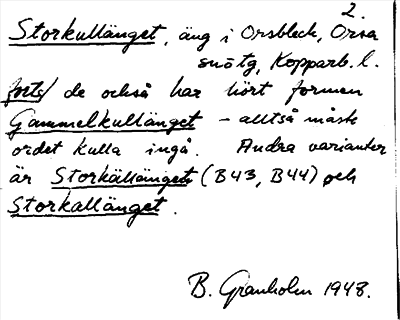 2.
Storkullänget, äng i Orsbleck, Orsa
snötg, Kopparb. l.
forts/ de också har hört formen
Gammelkullänget - alltså måste
ordet kulla ingå. Andra varianter
är Storkällänget (B43, B44) och
Storkallänget.
B. Granholm 1948.